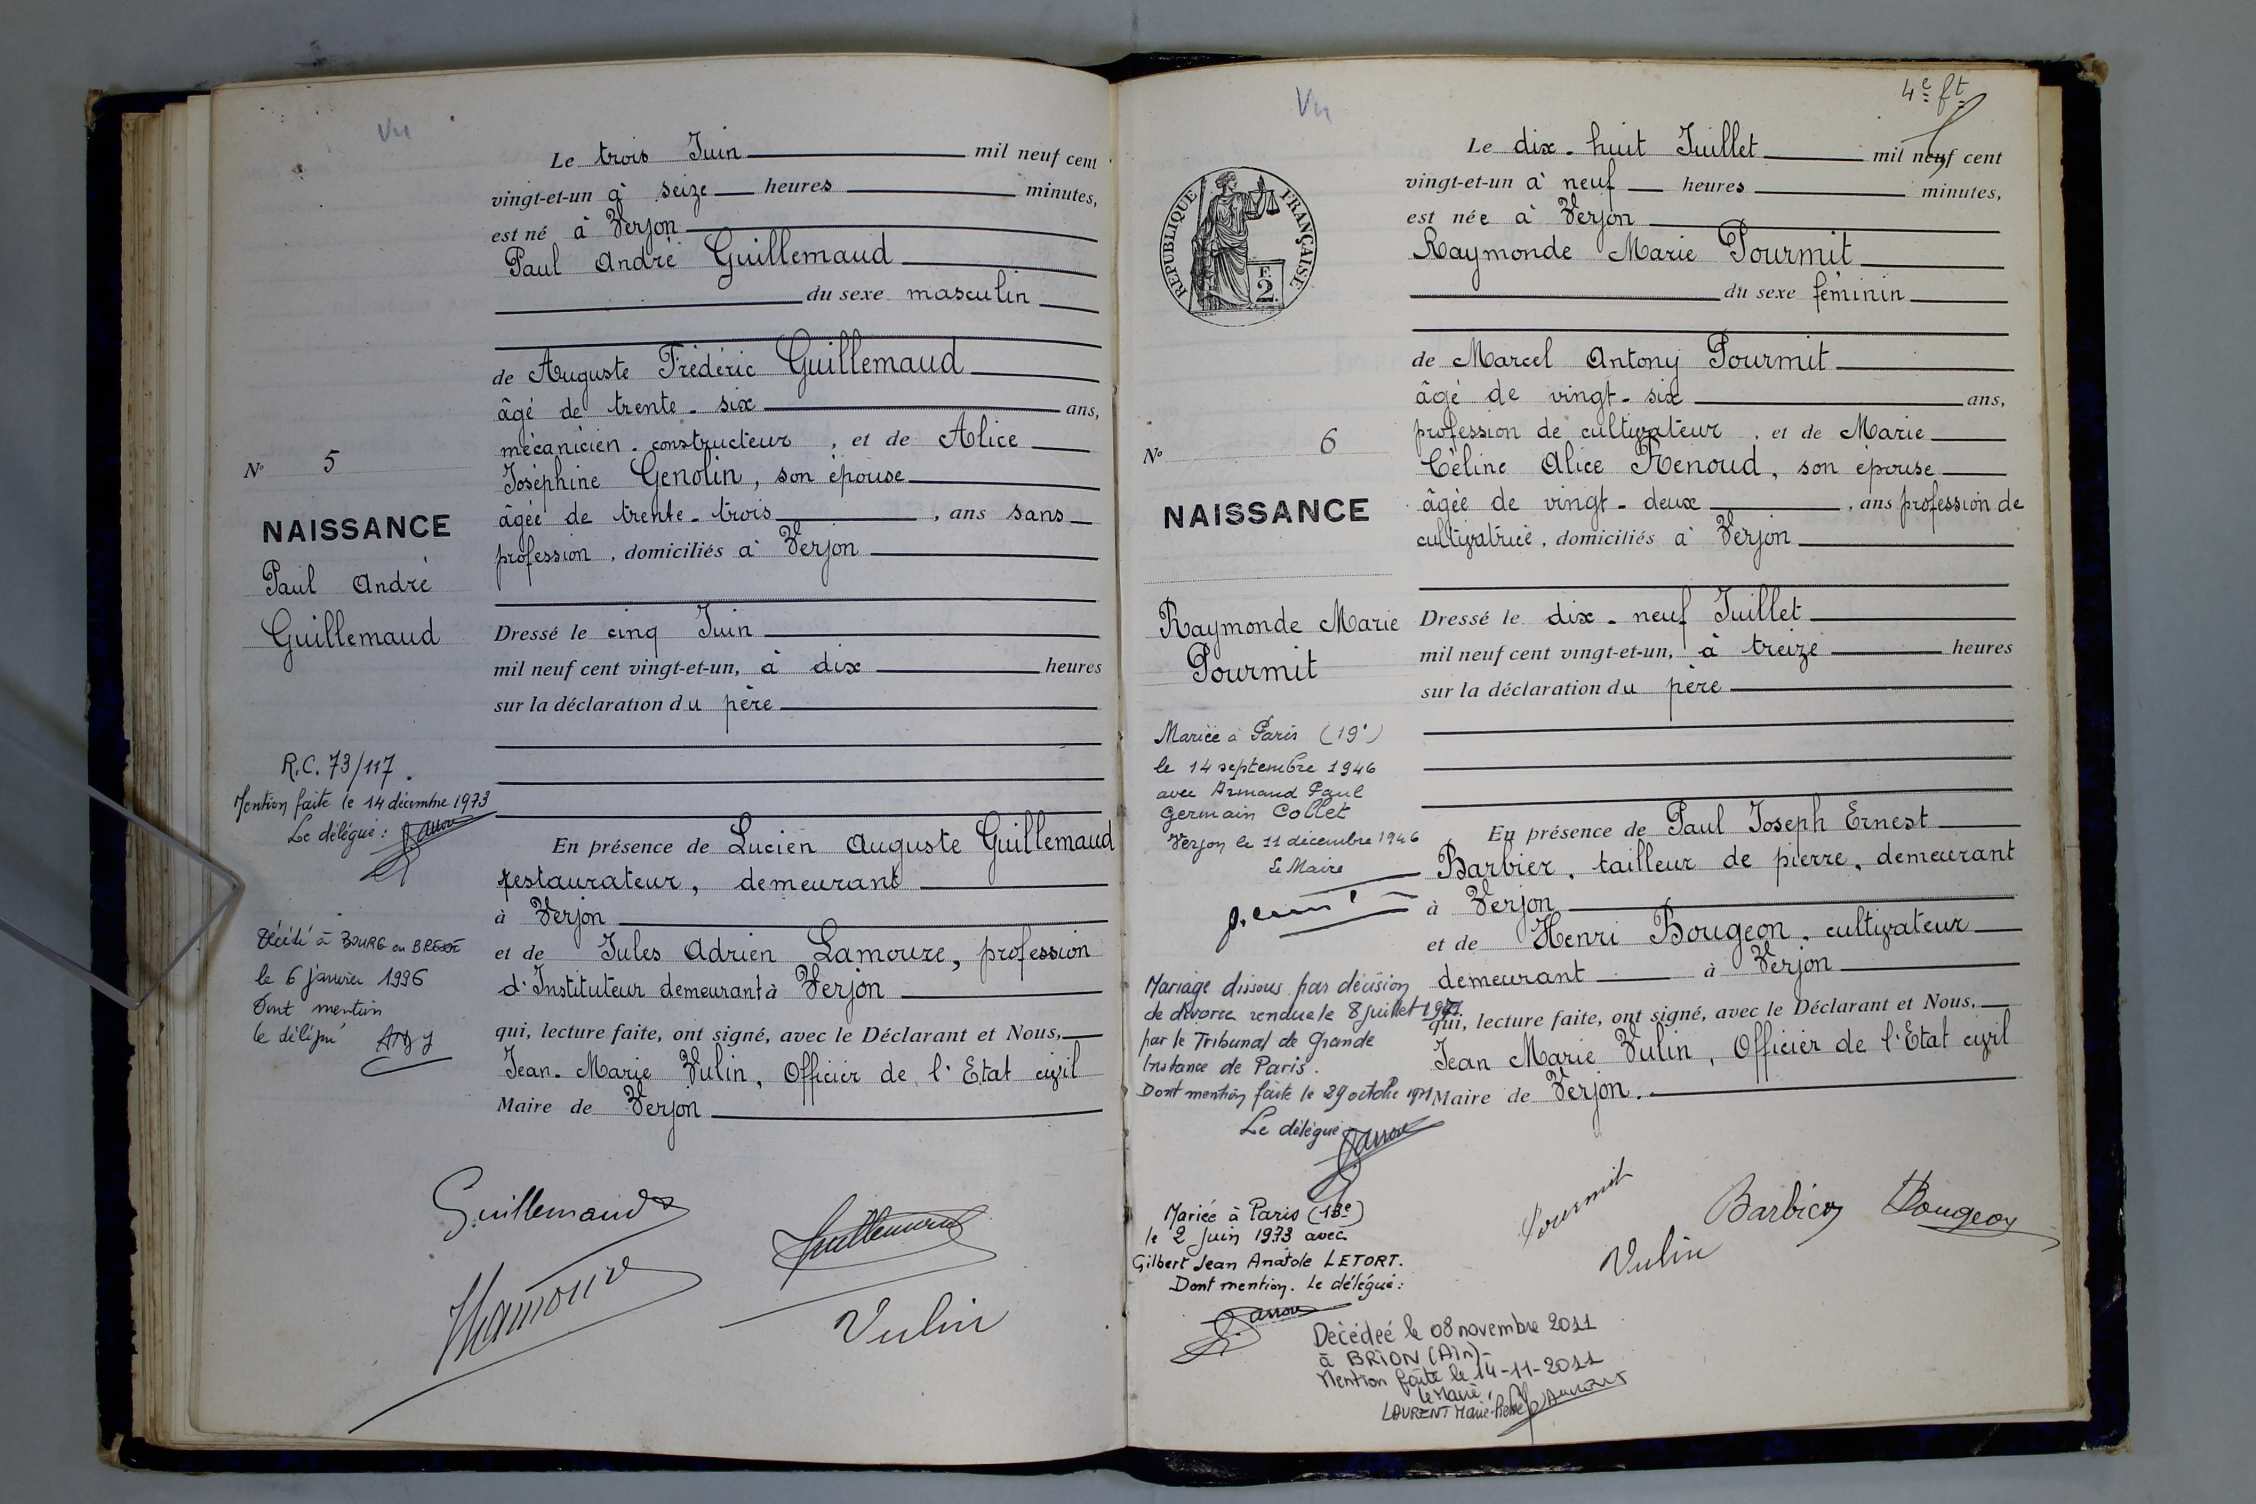 Vu
Le trois Juin mil neuf cent
vingt-et-un à seize heures minutes,
est né à Verjon
Paul André Guillemaud
du sexe masculin
de Auguste Frédéric Guillemaud
âgé de trente-six ans,
mécanicien-constructeur, et de Alice
Joséphine Genolin, son épouse
âgée de trente-trois, ans sans
profession, domiciliés à Verjon
Dressé le cinq Juin
mil neuf cent vingt-et-un, à dix heures
sur la déclaration du père
En présence de Lucien Auguste Guillemaud
restaurateur, demeurant
à Verjon
et de Jules Adrien Lamoure, profession
d'Instituteur demeurant à Verjon
qui, lecture faite, ont signé, avec le Déclarant et Nous,
Jean-Marie Vulin, Officier de l'Etat civil
Maire de Verjon
Nº 5
NAISSANCE
Paul André
Guillemaud
R.C. 73/117.
Mention faite le 14 décembre 1973
Le délégué :
Décédé à BOURG en BRESSE
le 6 janvier 1996
Dont mention
le délégué
Guillemaud
Guillemaud
Lamoure
Vulin
4e ft
Vu
RÉPUBLIQUE FRANÇAISE
F.
2
Le dix-huit Juillet mil neuf cent
vingt-et-un à neuf heures minutes,
est née à Verjon
Raymonde Marie Pourmit
du sexe féminin
de Marcel Antony Pourmit
âgé de vingt-six ans,
profession de cultivateur, et de Marie
Céline Alice Renoud, son épouse
âgée de vingt-deux, ans profession de
cultivatrice, domiciliés à Verjon
Dressé le dix-neuf Juillet
mil neuf cent vingt-et-un, à treize heures
sur la déclaration du père
En présence de Paul Joseph Ernest
Barbier, tailleur de pierre, demeurant
à Verjon
et de Henri Bougeon, cultivateur
demeurant à Verjon
qui, lecture faite, ont signé, avec le Déclarant et Nous,
Jean Marie Vulin, Officier de l'Etat civil
Maire de Verjon.
Nº 6
NAISSANCE
Raymonde Marie
Pourmit
Mariée à Paris (19e)
le 14 septembre 1946
avec Armand Paul
Germain Collet
Verjon le 11 décembre 1946
Le Maire
Mariage dissous par décision
de divorce rendue le 8 juillet 1971
par le Tribunal de Grande
Instance de Paris.
Dont mention faite le 29 octobre 1971
Le délégué
Mariée à Paris (18e)
le 2 Juin 1973 avec
Gilbert Jean Anatole LETORT.
Dont mention. Le délégué :
Décédée le 08 novembre 2011
à BRION (Ain)-
Mention faite le 14-11-2011
Le Maire,
LAURENT Marie-Pierre
Pourmit
Barbier
Bougeon
Vulin